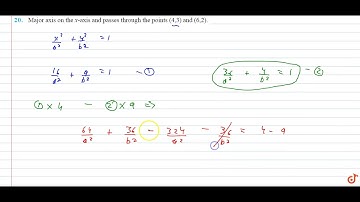 20. Major axis on the x-axis and passes through the points (4,3) and (6,2).
x²/a² + y²/b² = 1
16/a² + 9/b² = 1 — ①
36/a² + 4/b² = 1 — ②
① × 4 — ② × 9 ⇒
64/a² + 36/b² — 324/a² — 36/b² = 4 - 9